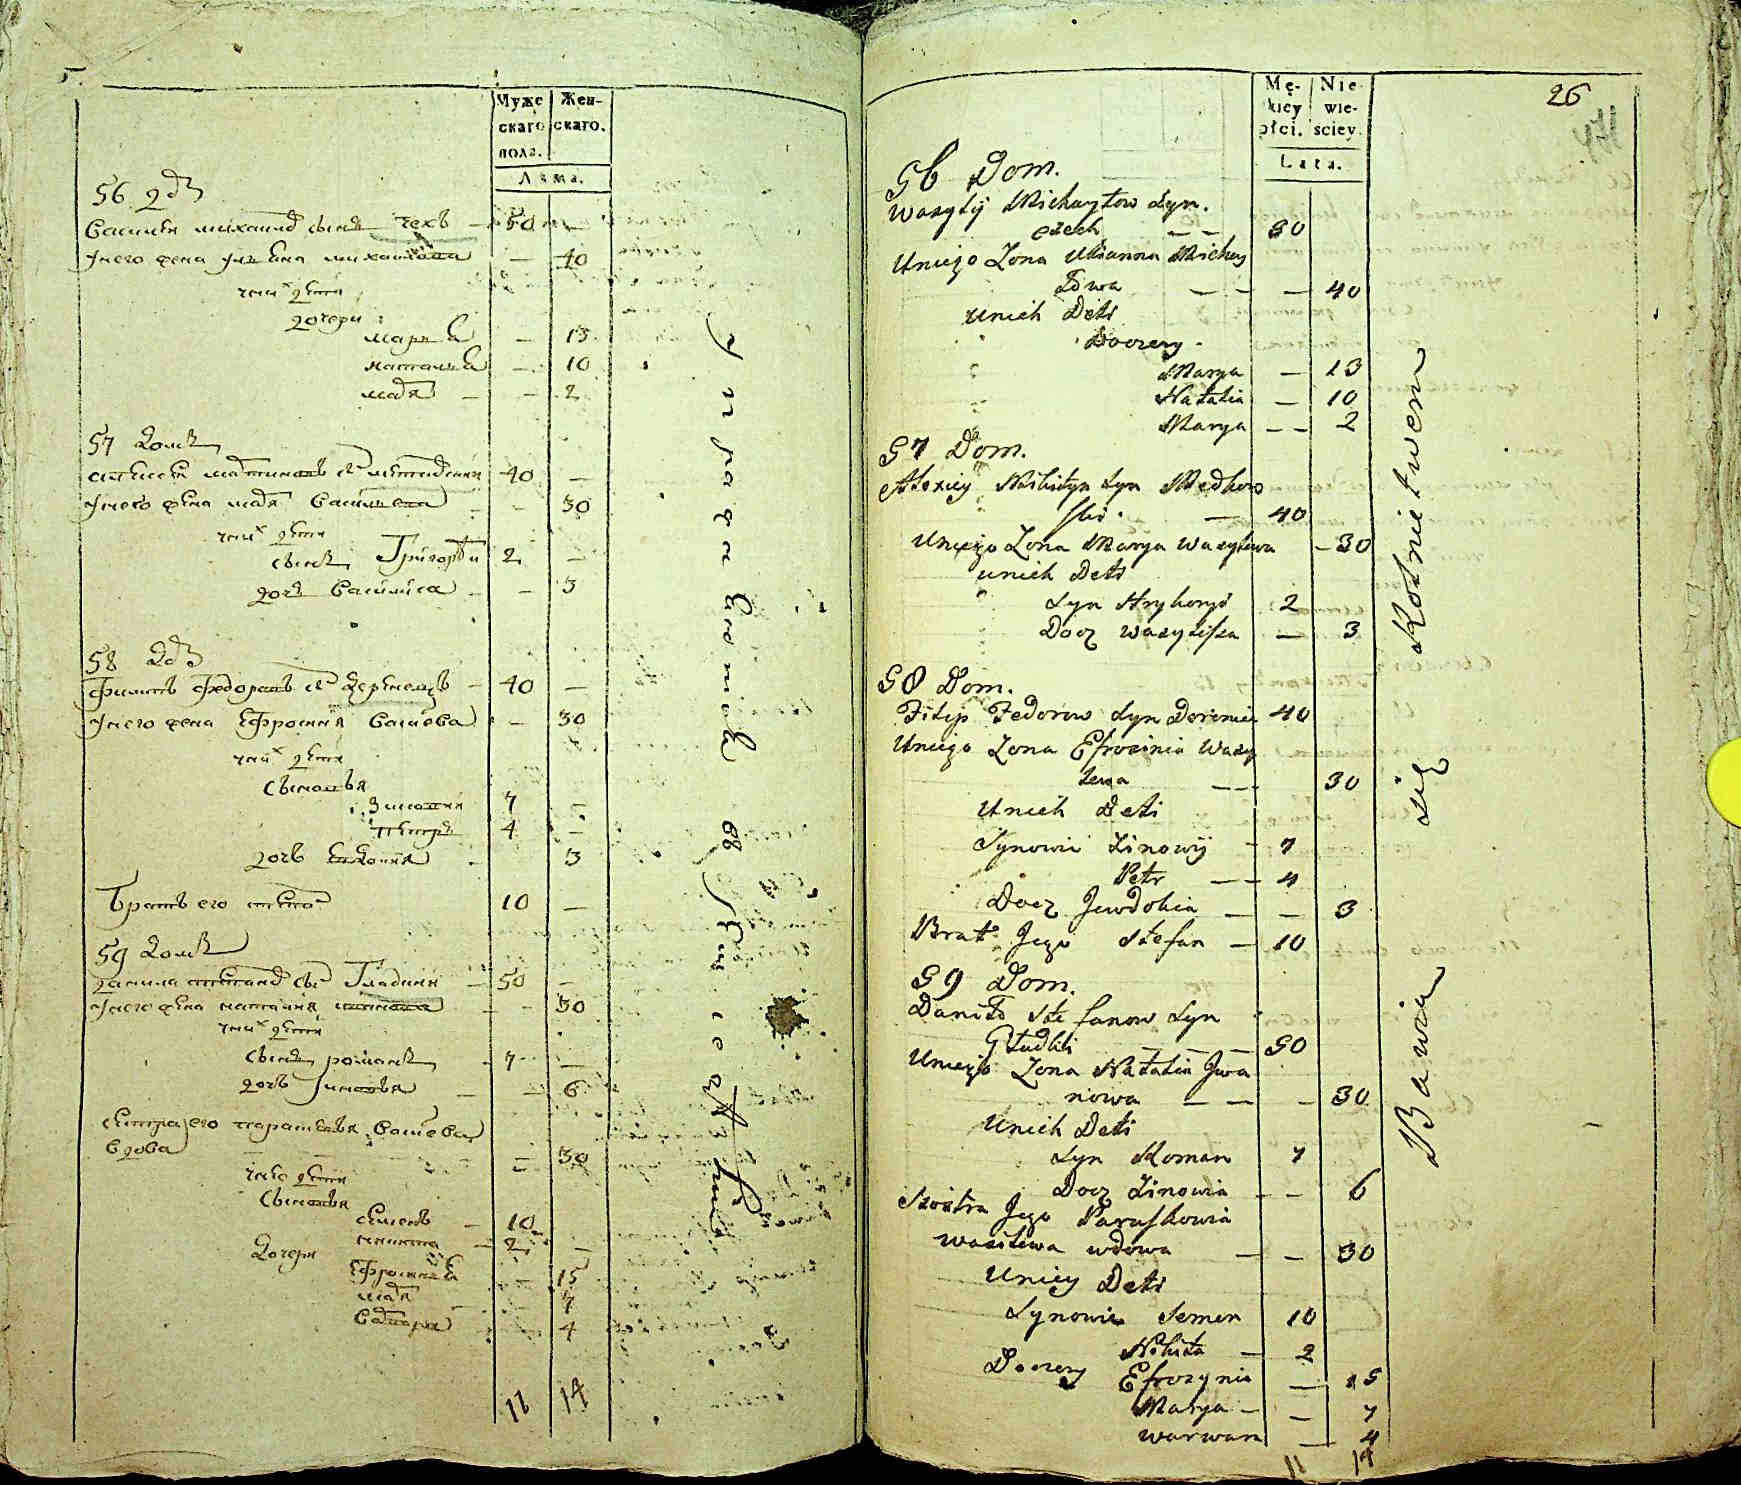 Муже
скаго
пола.
Жен-
скаго.
Лѣта.
56 дв
Василий Михайлов сынъ Чехъ — 50 —
У него жена Ульяна Михайлова — 40
У них дети
дочери:
Марья — 13
Наталья — 10
Марья — 2
57 Домъ
Алексей Никитинъ сынъ — 40 —
У него жена Марья Васильева — 30
У них дети
сынъ Григорей 2 —
дочь Василиса — 3
58 Дв
Филипъ Федоровъ сынъ — 40 —
У него жена Ефросиния Васильева — 30
У них дети
Сыновья
Зиновий 7 —
Петръ 4 —
дочь Евдокия — 3
Братъ его Степанъ 10 —
59 Домъ
Данила Степановъ сынъ Гладкий — 50 —
У него жена Наталия Иванова — 30
У них дети
Сынъ Романъ — 7 —
дочь Зиновья — 6
Сестра его Парасковья Васильева
вдова — 30
У нее дети
Сыновья
Семенъ — 10
Никита — 2 —
Дочери
Ефросинья — 15
Марья — 7
Варвара — 4
11 14
Упражняются в хлебопашестве
26
Mę-
skiey
płci.
Nie-
wie-
sciey.
Lata.
56 Dom.
Wasylij Michayłow Syn.
Czech — — 50
Uniego Żona Ulianna Michay
łowa — — — 40
Unich Deti
Doczery
Marya — 13
Natalia — 10
Marya — — 2
57 Dom.
Alexiey Nikityn Syn Medkow
ski. — 40
Uniego Żona Marya Wasylewa — 30
unich Deti
Syn Hryhoryi 2
Docz Wasylissa — 3
58 Dom.
Filip Fedorow Syn 40
Uniego Żona Efrosinia Wasy
lewa — — 30
Unich Deti
Synowie Zinowij — 7
Petr — — 4
Docz Jewdokia — — 3
Brat Jego Stefan — 10
59 Dom.
Daniło Stefanow Syn
Gładkii — — — 50
Uniego Żona Natalia Jwa
nowa — — — 30
Unich Deti
Syn Roman 7
Docz Zinowia — — 6
Siostra Jego Paraskowia
Wasilewa wdowa — — 30
Uniey Deti
Synowie Semen 10
Nikita — 2
Doczery Efrozynia — 15
Marya — — 7
Warwara — 4
11 14
Bawią się Rolnictwem